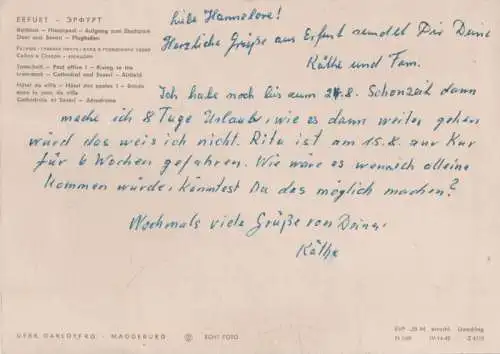 ERFURT - ЭРФУРТ
Rathaus - Hauptpost - Aufgang zum Stadtpark
Dom und Severi - Flughafen
Town-hall - Post office I - Rising to the
town-wood - Cathedral and Severi - Airfield
Hôtel de ville - Hôtel des postes I - Entrée
dans le parc de ville
Cathédrale et Severi - Aérodrome
Liebe Hannelore!
Herzliche Grüße aus Erfurt sendet Dir Deine
Käthe und Fam.
Ich habe noch bis zum 24.8. Schonzeit dann
mache ich 8 Tage Urlaub, wie es dann weiter gehen
würd das weis ich nicht. Rita ist am 15.8. zur Kur
für 6 Wochen gefahren. Wie wäre es wenn ich alleine
kommen würde, könntest Du das möglich machen?
Nochmals viele Grüße von Deiner
Käthe
GEBR. GARLOFF KG. - MAGDEBURG
ECHT FOTO
EVP -,25 M